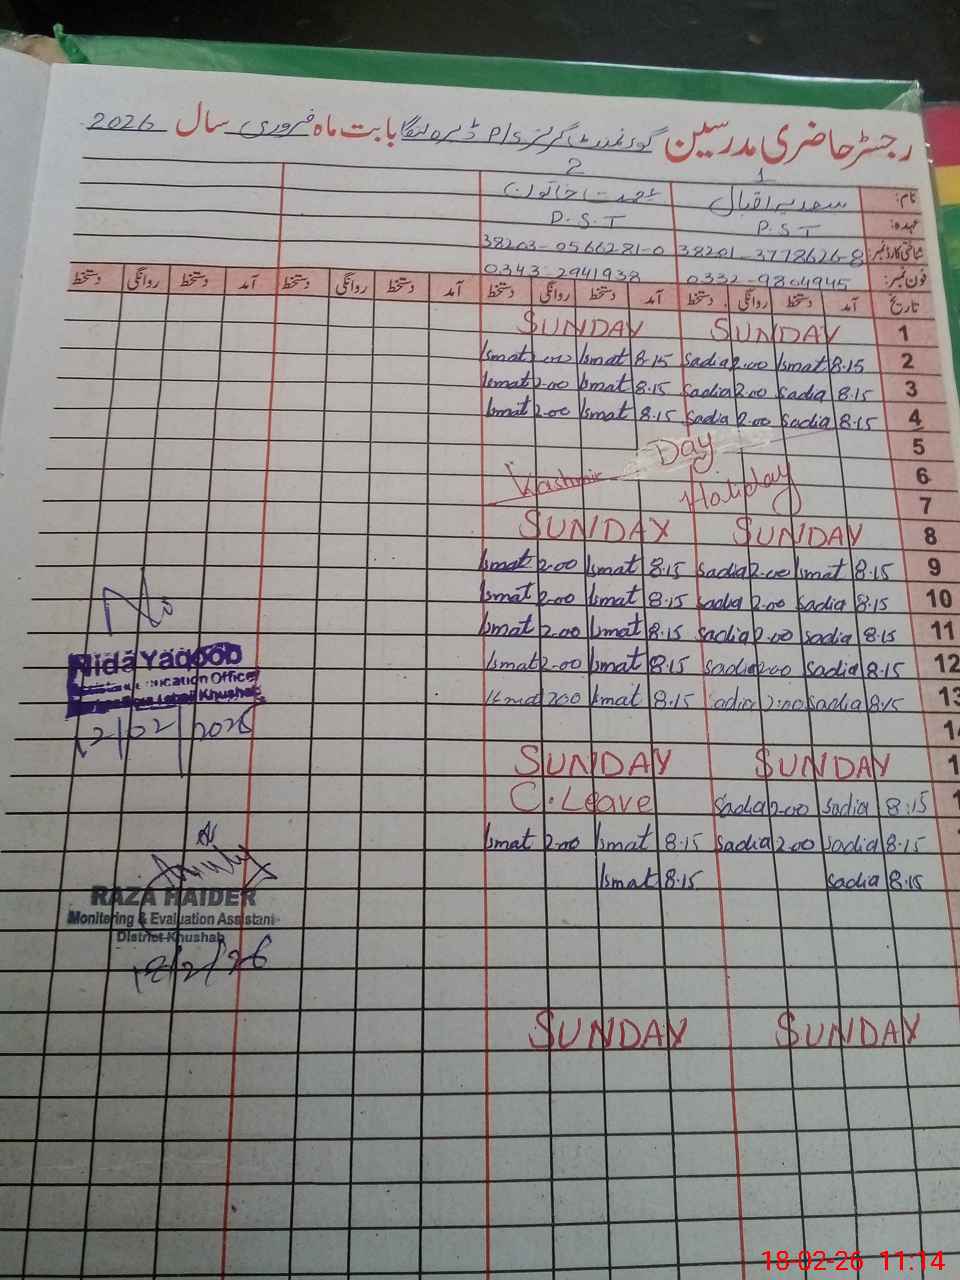 رجسٹر حاضری مدرسین گورنمنٹ گرلز P/S ڈیرہ بابت ماہ فروری سال 2026
1 2
نام: سعدیہ اقبال عصمت خاتون
عہدہ: P.S.T P.S.T
شناختی کارڈ نمبر: 38201-3778626-8 38203-0566281-0
فون نمبر: 0332-9804945 0343-2941938
تاریخ آمد دستخط روانگی دستخط آمد دستخط روانگی دستخط آمد دستخط روانگی دستخط آمد دستخط روانگی دستخط
SUNDAY SUNDAY 1
Ismat 2.00 Ismat 8.15 Sadia 2.00 Ismat 8.15 2
Ismat 2.00 Ismat 8.15 Sadia 2.00 Sadia 8.15 3
Ismat 2.00 Ismat 8.15 Sadia 2.00 Sadia 8.15 4
Kashmir Day 5
6
Holiday 7
SUNDAY SUNDAY 8
Ismat 2.00 Ismat 8.15 Sadia 2.00 Ismat 8.15 9
Ismat 2.00 Ismat 8.15 Sadia 2.00 Sadia 8.15 10
Ismat 2.00 Ismat 8.15 Sadia 2.00 Sadia 8.15 11
Ismat 2.00 Ismat 8.15 Sadia 2.00 Sadia 8.15 12
Ismat 2.00 Ismat 8.15 Sadia 2.00 Sadia 8.15 13
SUNDAY SUNDAY
C.Leave Sadia 2.00 Sadia 8.15
Ismat 2.00 Ismat 8.15 Sadia 2.00 Sadia 8.15
Ismat 8.15 Sadia 8.15
SUNDAY SUNDAY
Nida Yaqoob
Education Officer
Khushab
12/02/2026
RAZA HAIDER
Monitoring & Evaluation Assistant
District Khushab
12/2/26
18-02-26 11:14